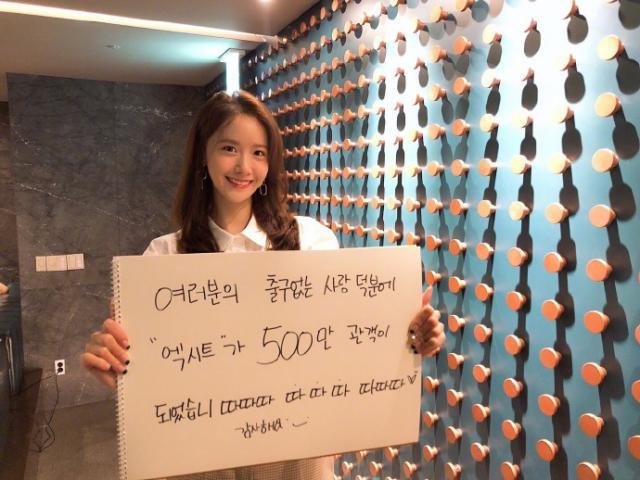 여러분의 출구없는 사랑 덕분에
"엑시트"가 500만 관객이
되었습니 따따따 따 따 따 따따따♡
감사해요